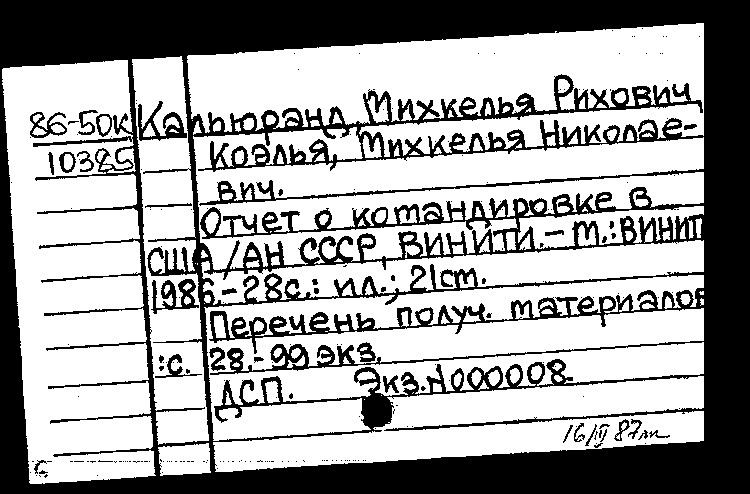 86-50к Кальюранд, Михкелья Рихович,
10385 Коэлья, Михкелья Николае-
вич.
Отчет о командировке в
США /АН СССР, ВИНИТИ.- м.:ВИНИТ
1986.-28с.: ил.; 21см.
Перечень получ. материалов
:с. 28.- 99 экз.
ДСП. Экз.N000008.
16/III 87м
с